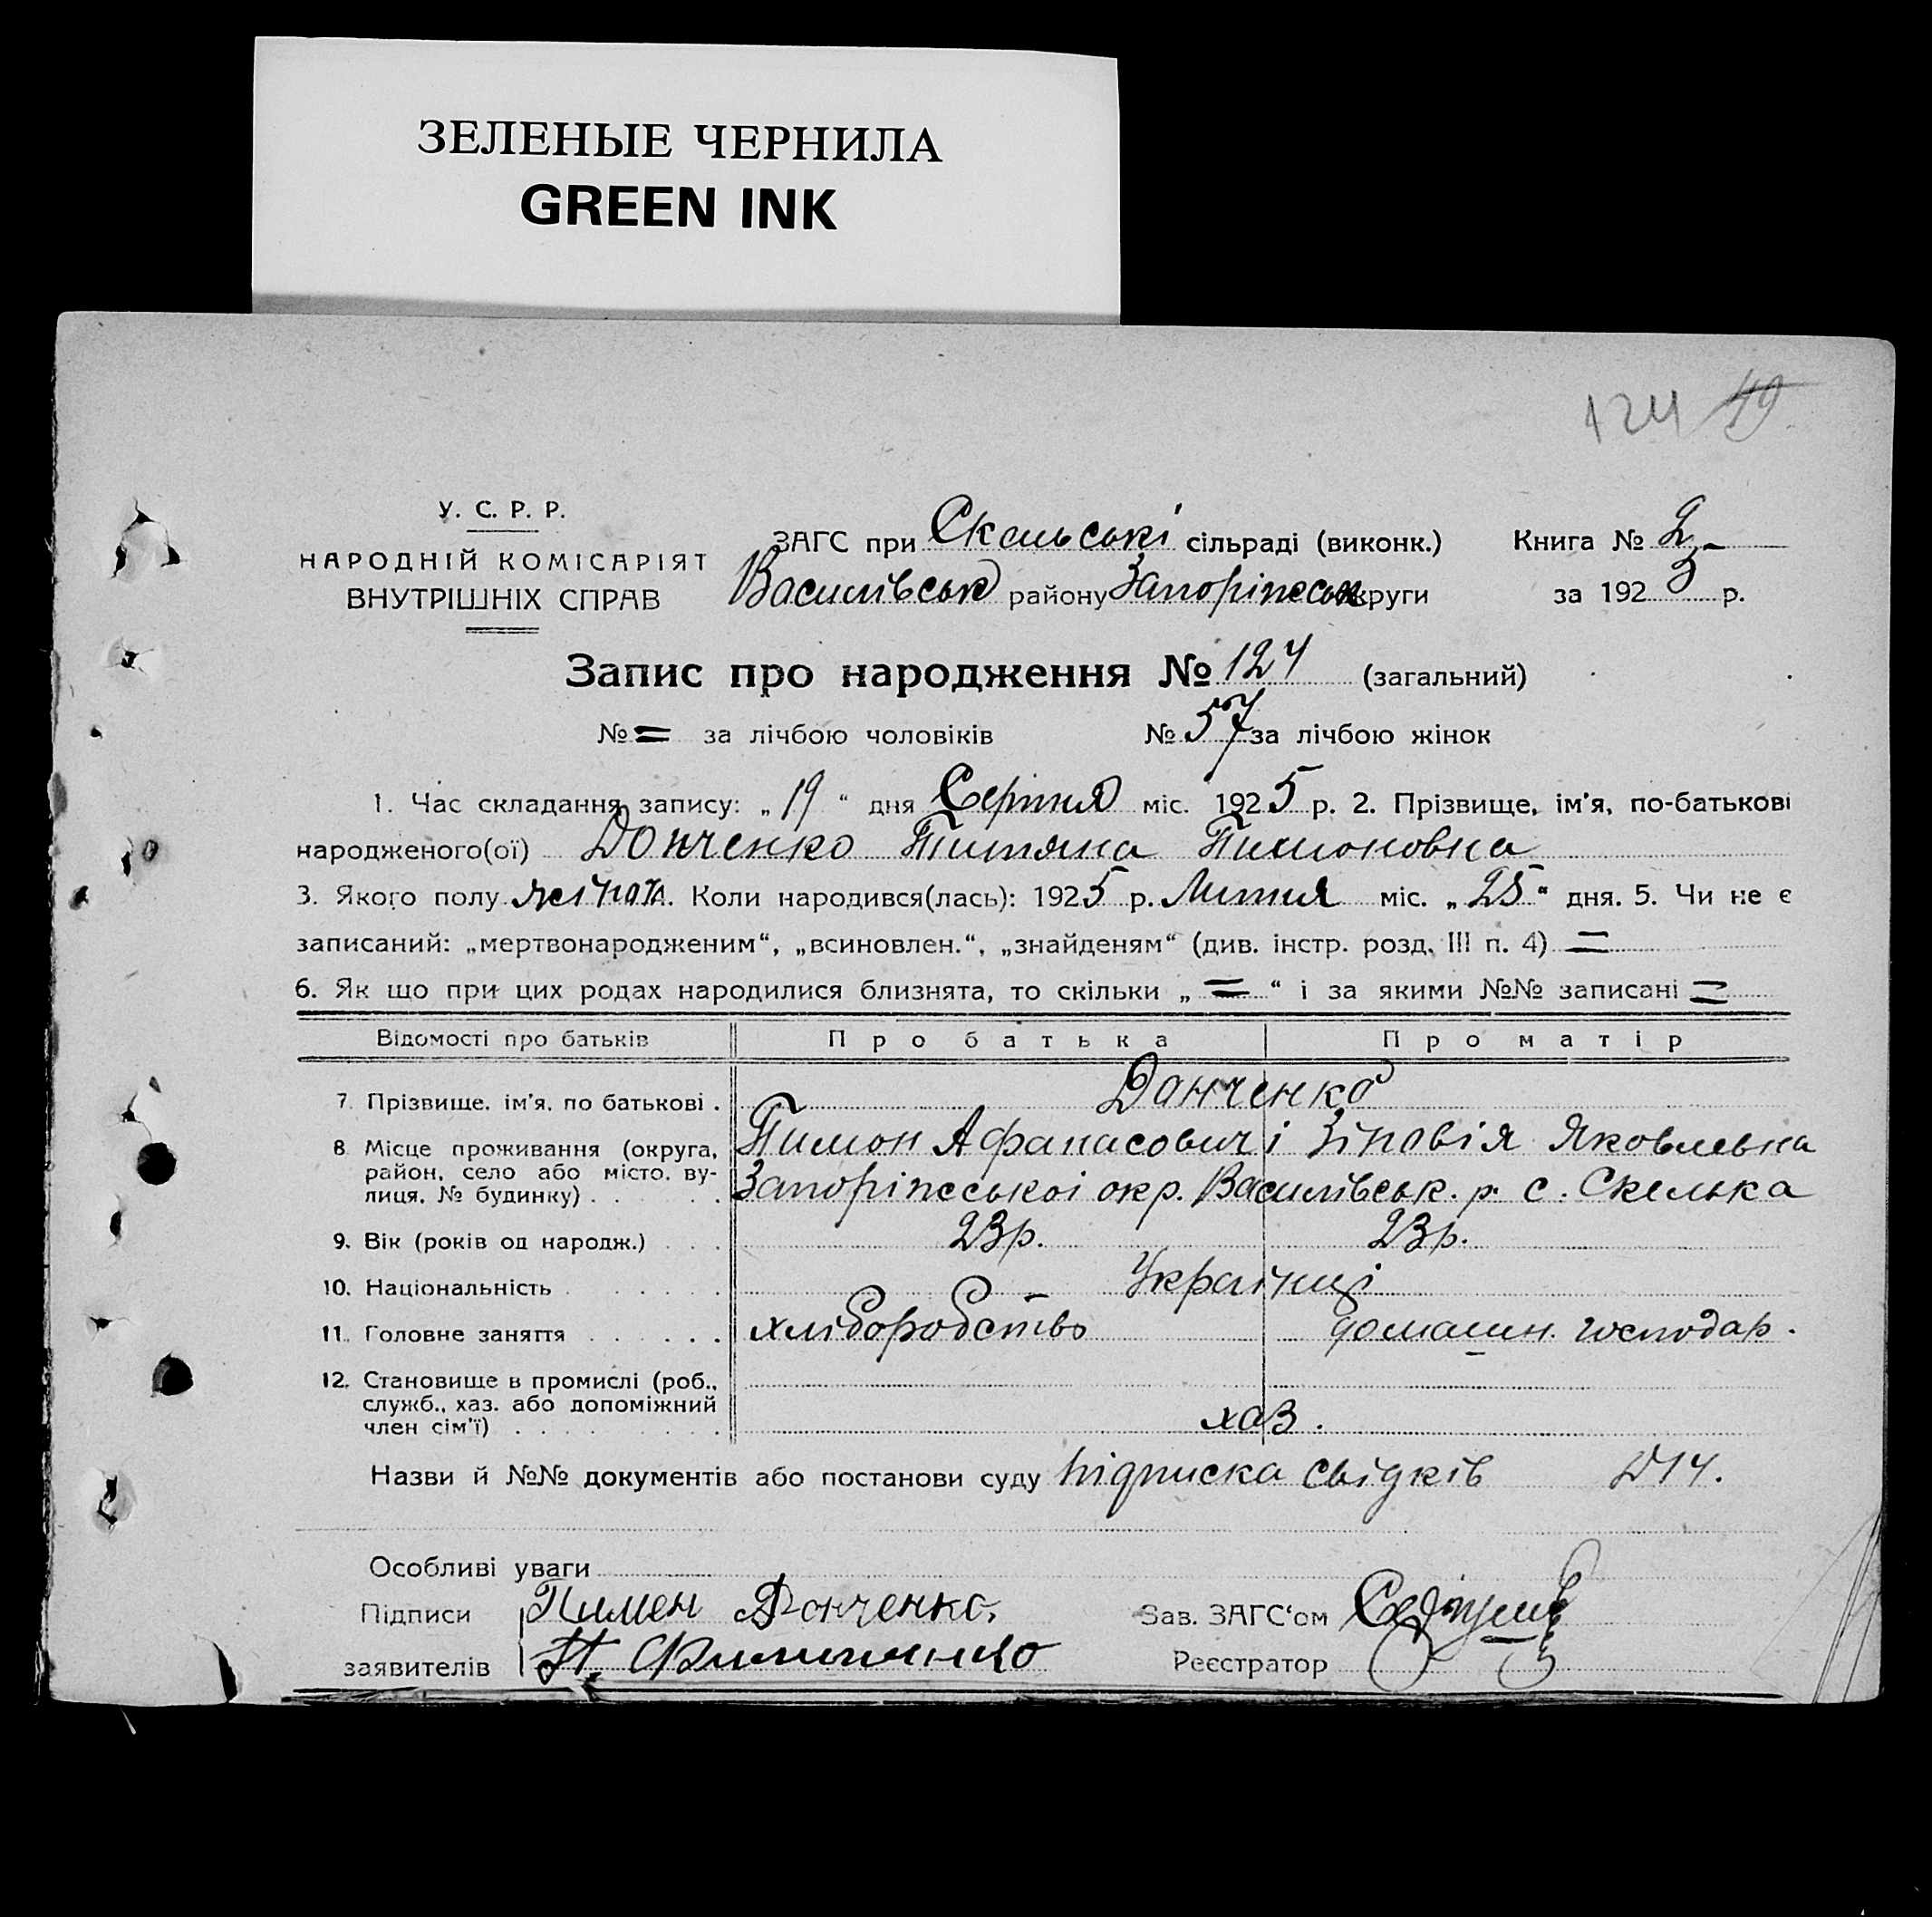 ЗЕЛЕНЫЕ ЧЕРНИЛА
GREEN INK
124 49
У. С. Р. Р.
НАРОДНІЙ КОМІСАРІЯТ
ВНУТРІШНІХ СПРАВ
ЗАГС при Скельські сільраді (виконк.) Книга № 2
Василівськ району Запоріжськ округи за 1925 р.
Запис про народження № 124 (загальний)
№ = за лічбою чоловіків № 57 за лічбою жінок
1. Час складання запису: „ 19 “ дня Серпня міс. 1925 р. 2. Прізвище, ім'я, по-батькові
народженого(ої) Донченко Титяна Тимоновна
3. Якого полу жіноч. Коли народився(лась): 1925 р. Липня міс. „ 25 “ дня. 5. Чи не є
записаний: „мертвонародженим“, „всиновлен.“, „знайденям“ (див. інстр. розд. III п. 4) =
6. Як що при цих родах народилися близнята, то скільки „ = “ і за якими №№ записані =
Відомості про батьків Про батька Про матір
7. Прізвище, ім'я, по батькові . Данченко
8. Місце проживання (округа, Тимон Афанасович і Зіновія Яковлевна
район, село або місто, ву-
лиця, № будинку) . . . . . Запоріжської окр. Василівськ. р. с. Скелька
9. Вік (років од народж.) . . . 23 р. 23 р.
10. Національність . . . . . . . Українці
11. Головне заняття . . . . . . хліборобство домашн. господар.
12. Становище в промислі (роб.,
служб., хаз. або допоміжний
член сім'ї) . . . . . . . . . хаз.
Назви й №№ документів або постанови суду підписка свідків
Особливі уваги
Підписи Тимен Донченко. Зав. ЗАГС'ом
заявителів Реєстратор